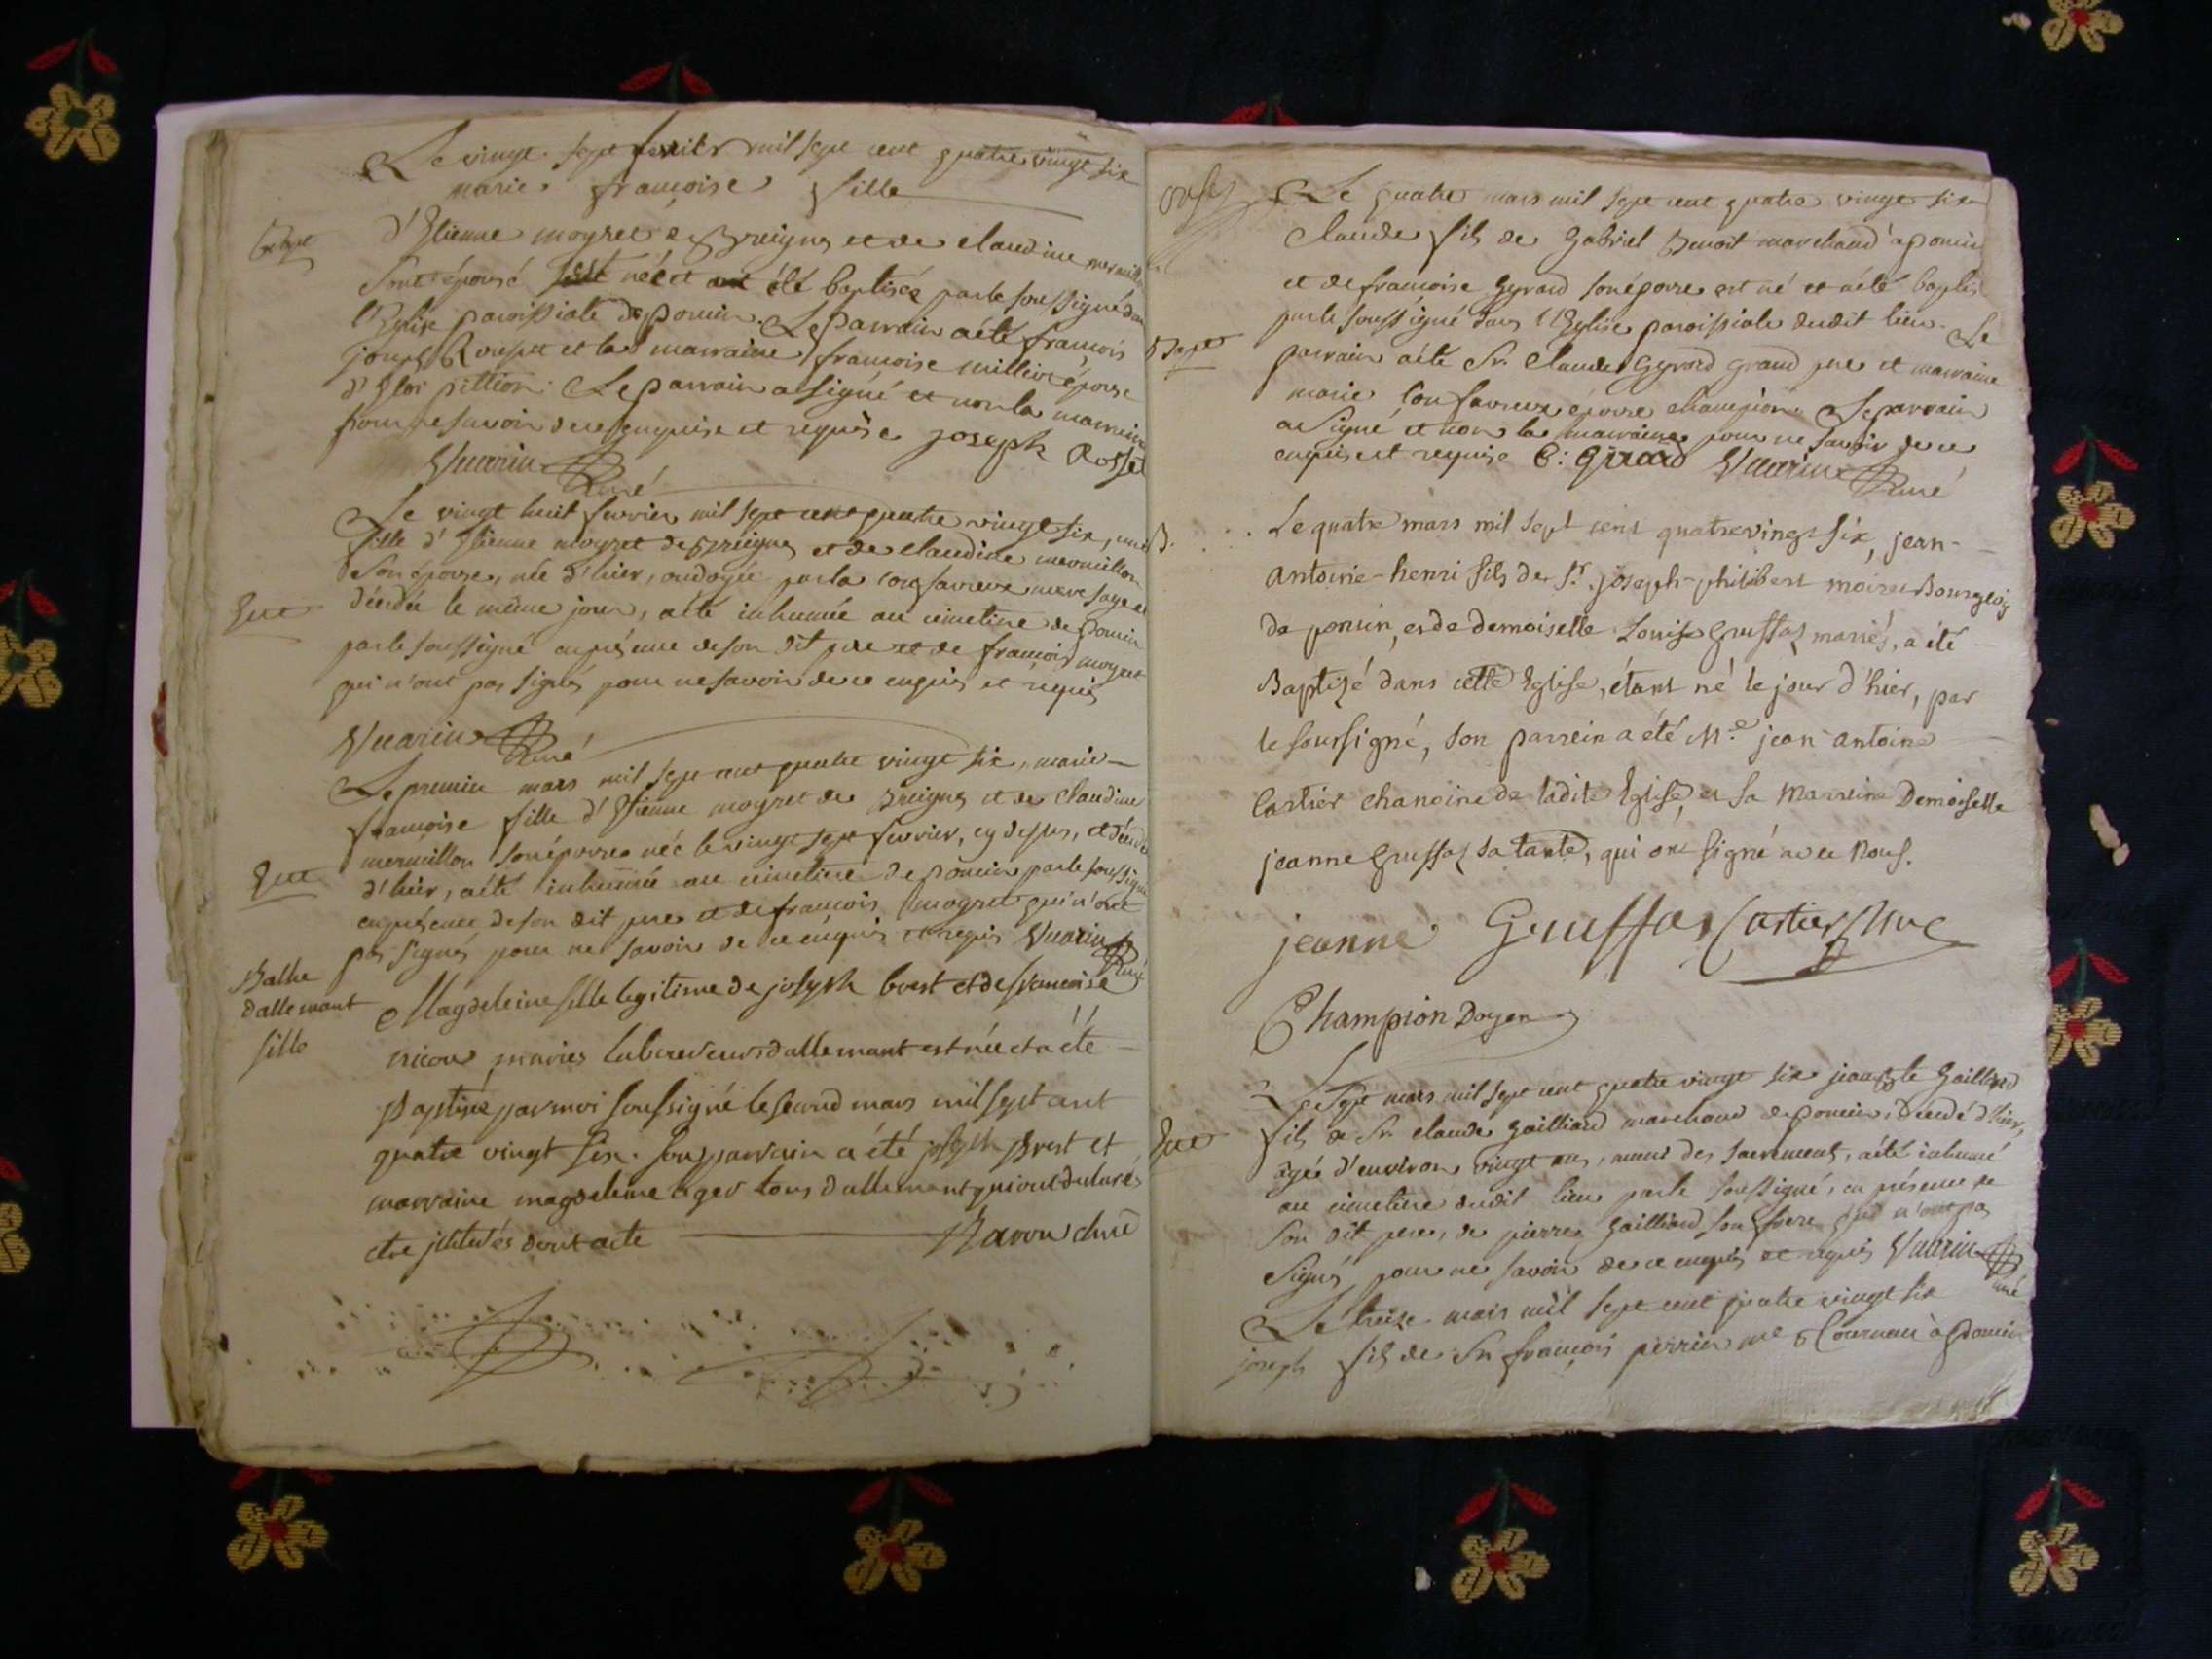 Le vingt sept fevrier mil sept cent quatre vingt six
marie françoise fille
Bapt
d'Etienne moyret de Breignes et de claudine mermillon
Son épouse est née et a été baptisée par le soussigné dans
l'Eglise paroissiale de poncin. Le parrain a été françois
joseph Rousset et la marraine françoise millier épouse
d'Eloi pittion. Le parrain a signé et non la marraine
pour ne savoir de ce enquise et requise joseph Rosset
Vuarin Curé
Le vingt huit fevrier mil sept cent quatre vingt six, une
fille d'Etienne moyret de Breignes et de claudine mermillon
Son épouse, née d'hier, ondoyée par la confavreux mere sage et
Ent
décédée le même jour, a été inhumée au cimetiere de Poncin
par le soussigné en présence de son dit pere et de françois moyret
qui n'ont pas signés pour ne savoir de ce enquis et requis
Vuarin Curé
Le premier mars mil sept cent quatre vingt six, marie
françoise fille d'Etienne moyret de Breignes et de claudine
mermillon son épouse née le vingt sept fevrier, cy dessus, et décédée
Ent
d'hier, a été inhumée au cimetiere de poncin par le soussigné
en présence de son dit pere et de francois moyret qui n'ont
pas signés pour ne savoir de ce enquis et requis Vuarin Curé
Balthe
dallemant
fille
Magdeleine fille legitime de joseph brest et de francoise
nicoud mariés laboureurs dallemant est née et a été
Baptisée par moi soussigné le second mars mil sept cent
quatre vingt six. son parrain a été joseph Brest et
marraine magdeleine tous dallemant qui ont déclarés
etre illitérés dont acte Ravou curé
Le quatre mars mil sept cent quatre vingt six
Claude fils de Gabriel Benoit marchand à poncin
et de francoise Gyrard son épouse est né et a été baptisé
par le soussigné dans l'Eglise paroissiale dudit lieu. Le
Bapt
parrain a été Sr. Claude Gyrard grand pere et marraine
marie Confavreux épouse champion. Le parrain
a Signé et non la marraine pour ne savoir de ce
enquise et requise C: Girard Vuarin Curé
B. Le quatre mars mil sept cent quatre vingt six, jean-
antoine-henri fils de Sr. joseph-philibert moiret Bourgeois
de poncin, et de demoiselle Louise Gruffaz mariés, a été
Baptizé dans cette Eglise, étant né le jour d'hier, par
le soussigné, son parrein a été Mre jean antoine
Cartier chanoine de ladite Eglise, et sa Marreine Demoiselle
jeanne Gruffaz sa tante, qui ont signé avec Nous.
jeanne Gruffaz Cartier
Champion Doyen
Le Sept mars mil sept cent quatre vingt six jean Bte Gailliard
Ent
fils de Sr. claude Gailliard marchand de poncin, décédé d'hier,
agée d'environ vingt ans, muni des sacrements, a été inhumé
au cimetiere dudit lieu par le soussigné, en présence de
Son dit pere, de pierre Gailliard son frere qui n'ont pas
Signés pour ne savoir de ce enquis et requis Vuarin Curé
Le treize mars mil sept cent quatre vingt six
joseph fils de Sr. françois perrier me Tourneur à Poncin